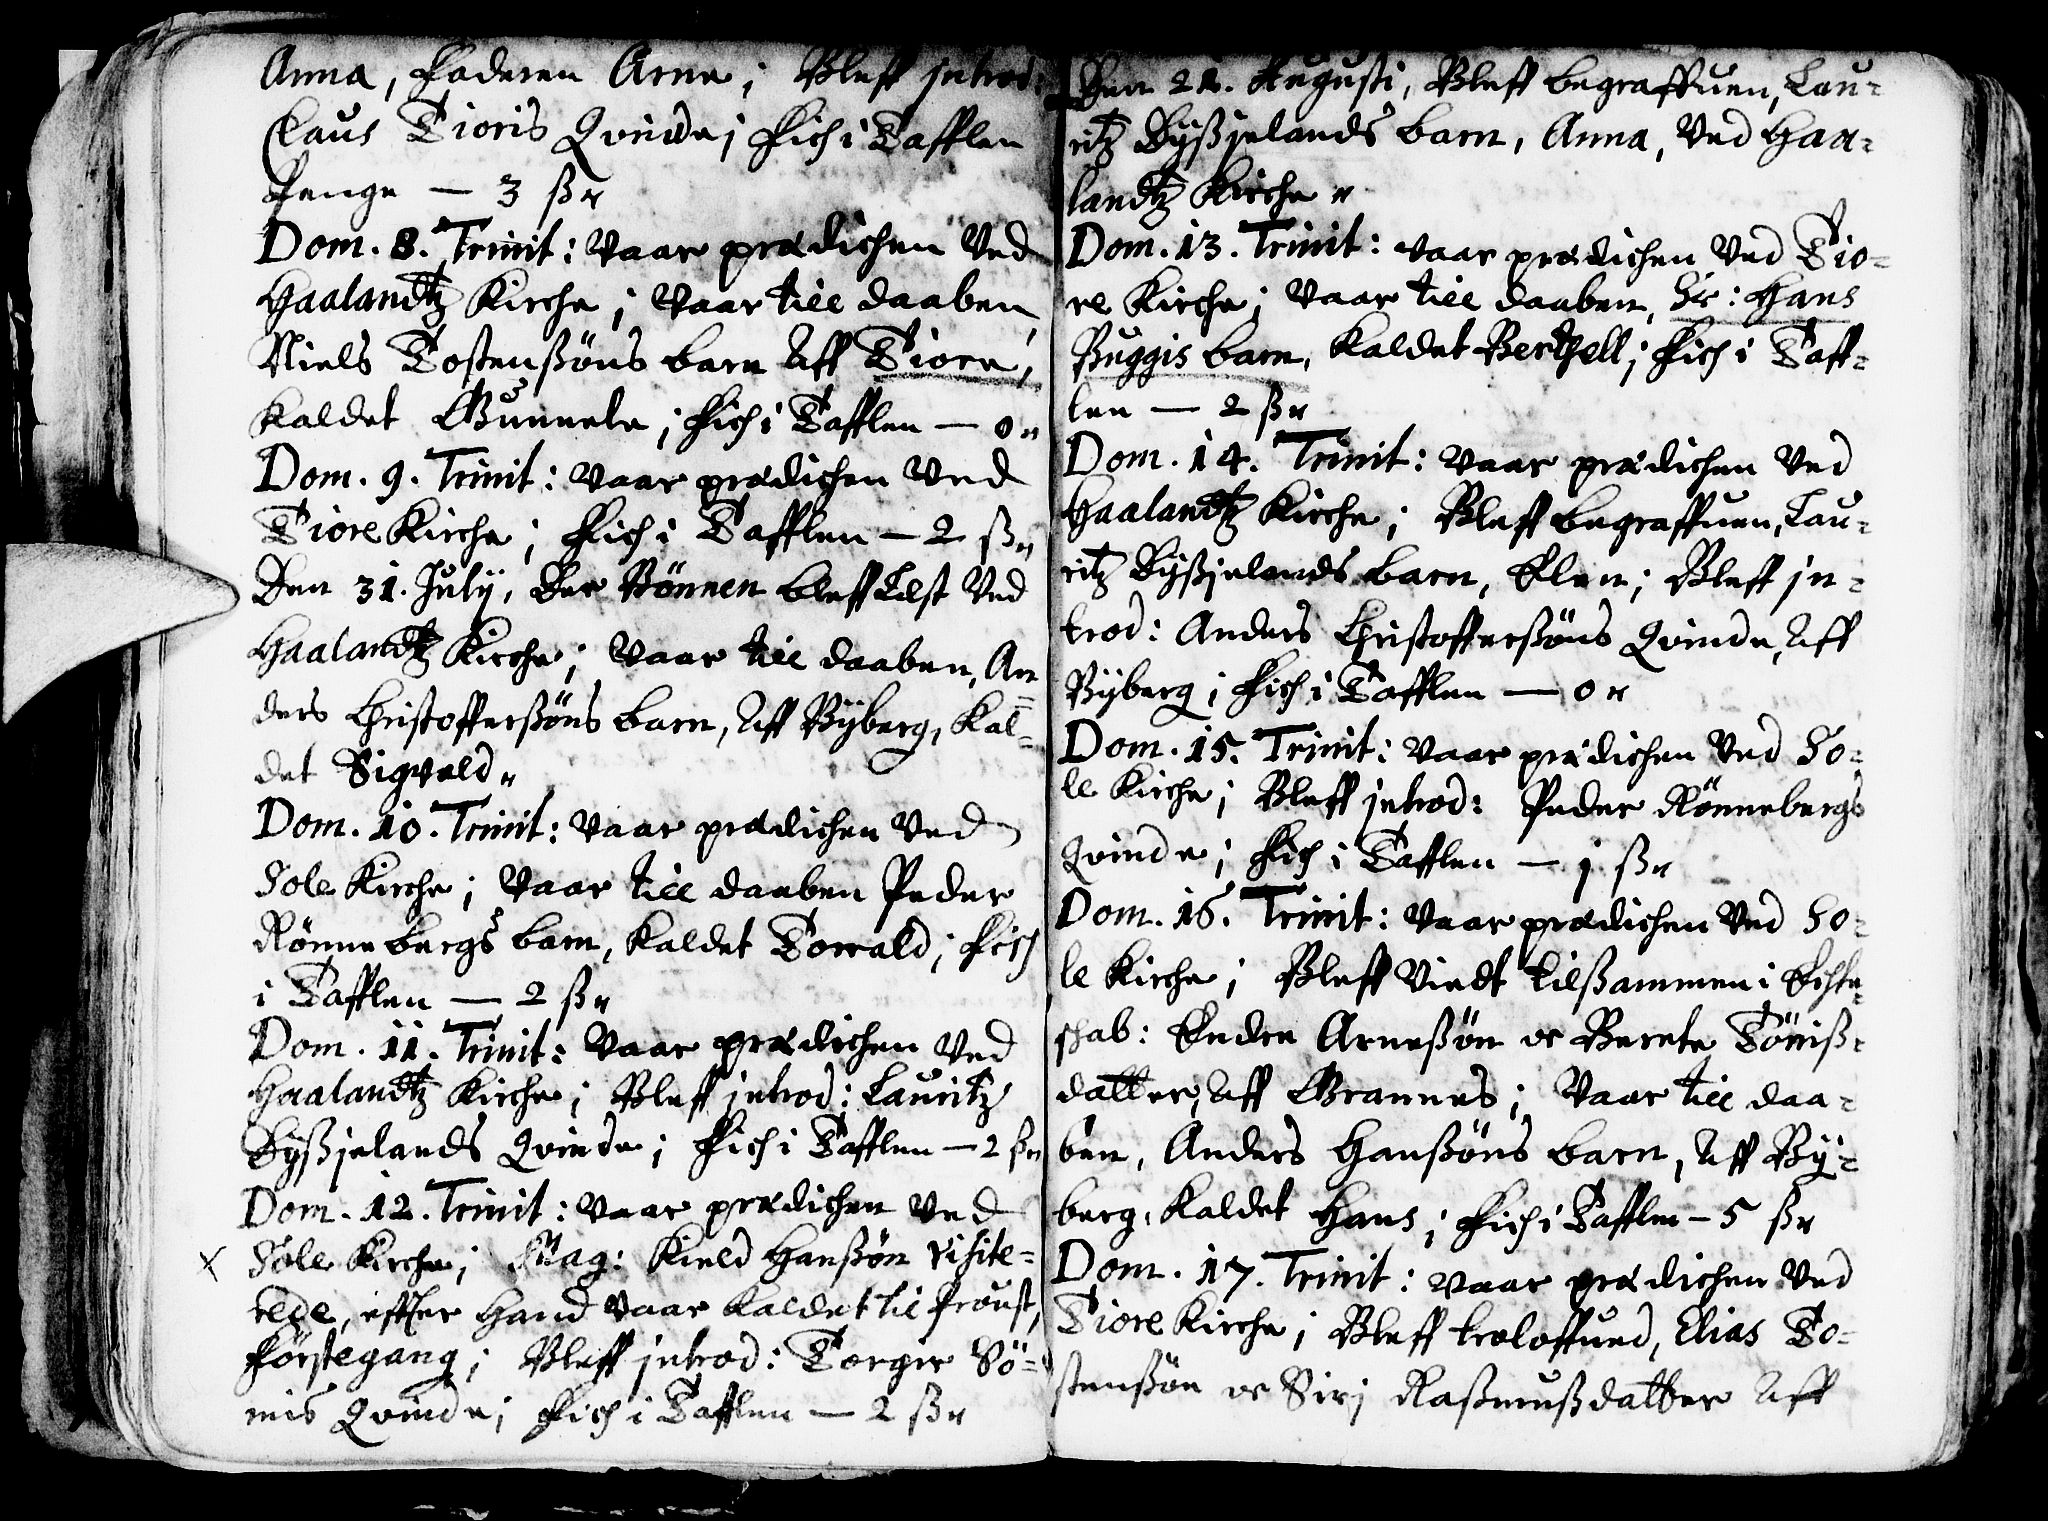 Anna, Faderen Arne; Bleff introd:
Claus Tioris Qvinde; Fich i Tafflen
Penge — 3 ß
Dom. 8. Trinit: Vaar prædichen Ved
Haalandtz Kirche; Vaar till daaben,
Niels Tostenßöns barn Aff Tiora,
Kaldet Gunnele; Fich i Tafflen — 0
Dom. 9. Trinit: Vaar prædichen Ved
Tiore Kirche; Fich i Tafflen — 2 ß
Den 31. Julij, Der Bönnen bleff Læst Ved
Haalandtz Kirche; Vaar till daaben, An=
ders Christofferßöns barn, Aff Byberg, Kal=
det Sigvald
Dom. 10. Trinit: Vaar prædichen Ved
Sole Kirche; Vaar till daaben Peder
Rönnebergs barn, Kaldet Torvald; Fich
i Tafflen — 2 ß
Dom. 11. Trinit: Vaar prædichen Ved
Haalandtz Kirche; Bleff introd: Lauritz
Byßjelands Qvinde; Fich i Tafflen — 2 ß
Dom. 12. Trinit: Vaar prædichen Ved
x Sole Kirche; Mag: Kield Hanßøn Visite=
rede, effter Hand Vaar Kaldet til Proust,
Förstegang; Bleff introd: Torger Sö=
mis Qvinde; Fich i Tafflen — 2 ß
Den 21. Augusti, Bleff begraffuen, Lau=
ritz Byßjelands barn, Anna, Ved Haa=
landtz Kirche
Dom. 13. Trinit: Vaar prædichen Ved Tio=
re Kirche; Vaar till daaben, Hr: Hans
Buggis barn, Kaldet Berthell; Fich i Taff=
len — 2 ß
Dom. 14. Trinit: Vaar prædichen Ved
Haalandtz Kirche; Bleff begraffuen, Lau=
ritz Byßjelands barn, Elen; Bleff in=
trod: Anders Christofferßöns Qvinde, Aff
Byberg; Fich i Tafflen — 0
Dom. 15. Trinit: Vaar prædichen Ved So=
le Kirche; Bleff introd: Peder Rönnebergs
Qvinde; Fich i Tafflen — 1 ß
Dom. 16. Trinit: Vaar prædichen Ved So=
le Kirche; Bleff Viedt tilßammen i Echte=
schab: Endre Arneßön oc Berete Töniß=
datter, Aff Grannes; Vaar till daa=
ben, Anders Hanßöns barn, Aff By=
berg, Kaldet Hans; Fich i Tafflen — 5 ß
Dom. 17. Trinit: Vaar prædichen Ved
Tiore Kirche; Bleff troloffued, Elias To=
stenßön oc Sirj Raßmußdatter Aff